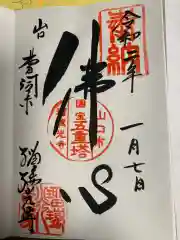 奉納
令和二年
一月七日
佛心
山口市
国宝
五重塔
瑠璃光寺
山口
瑠璃光寺